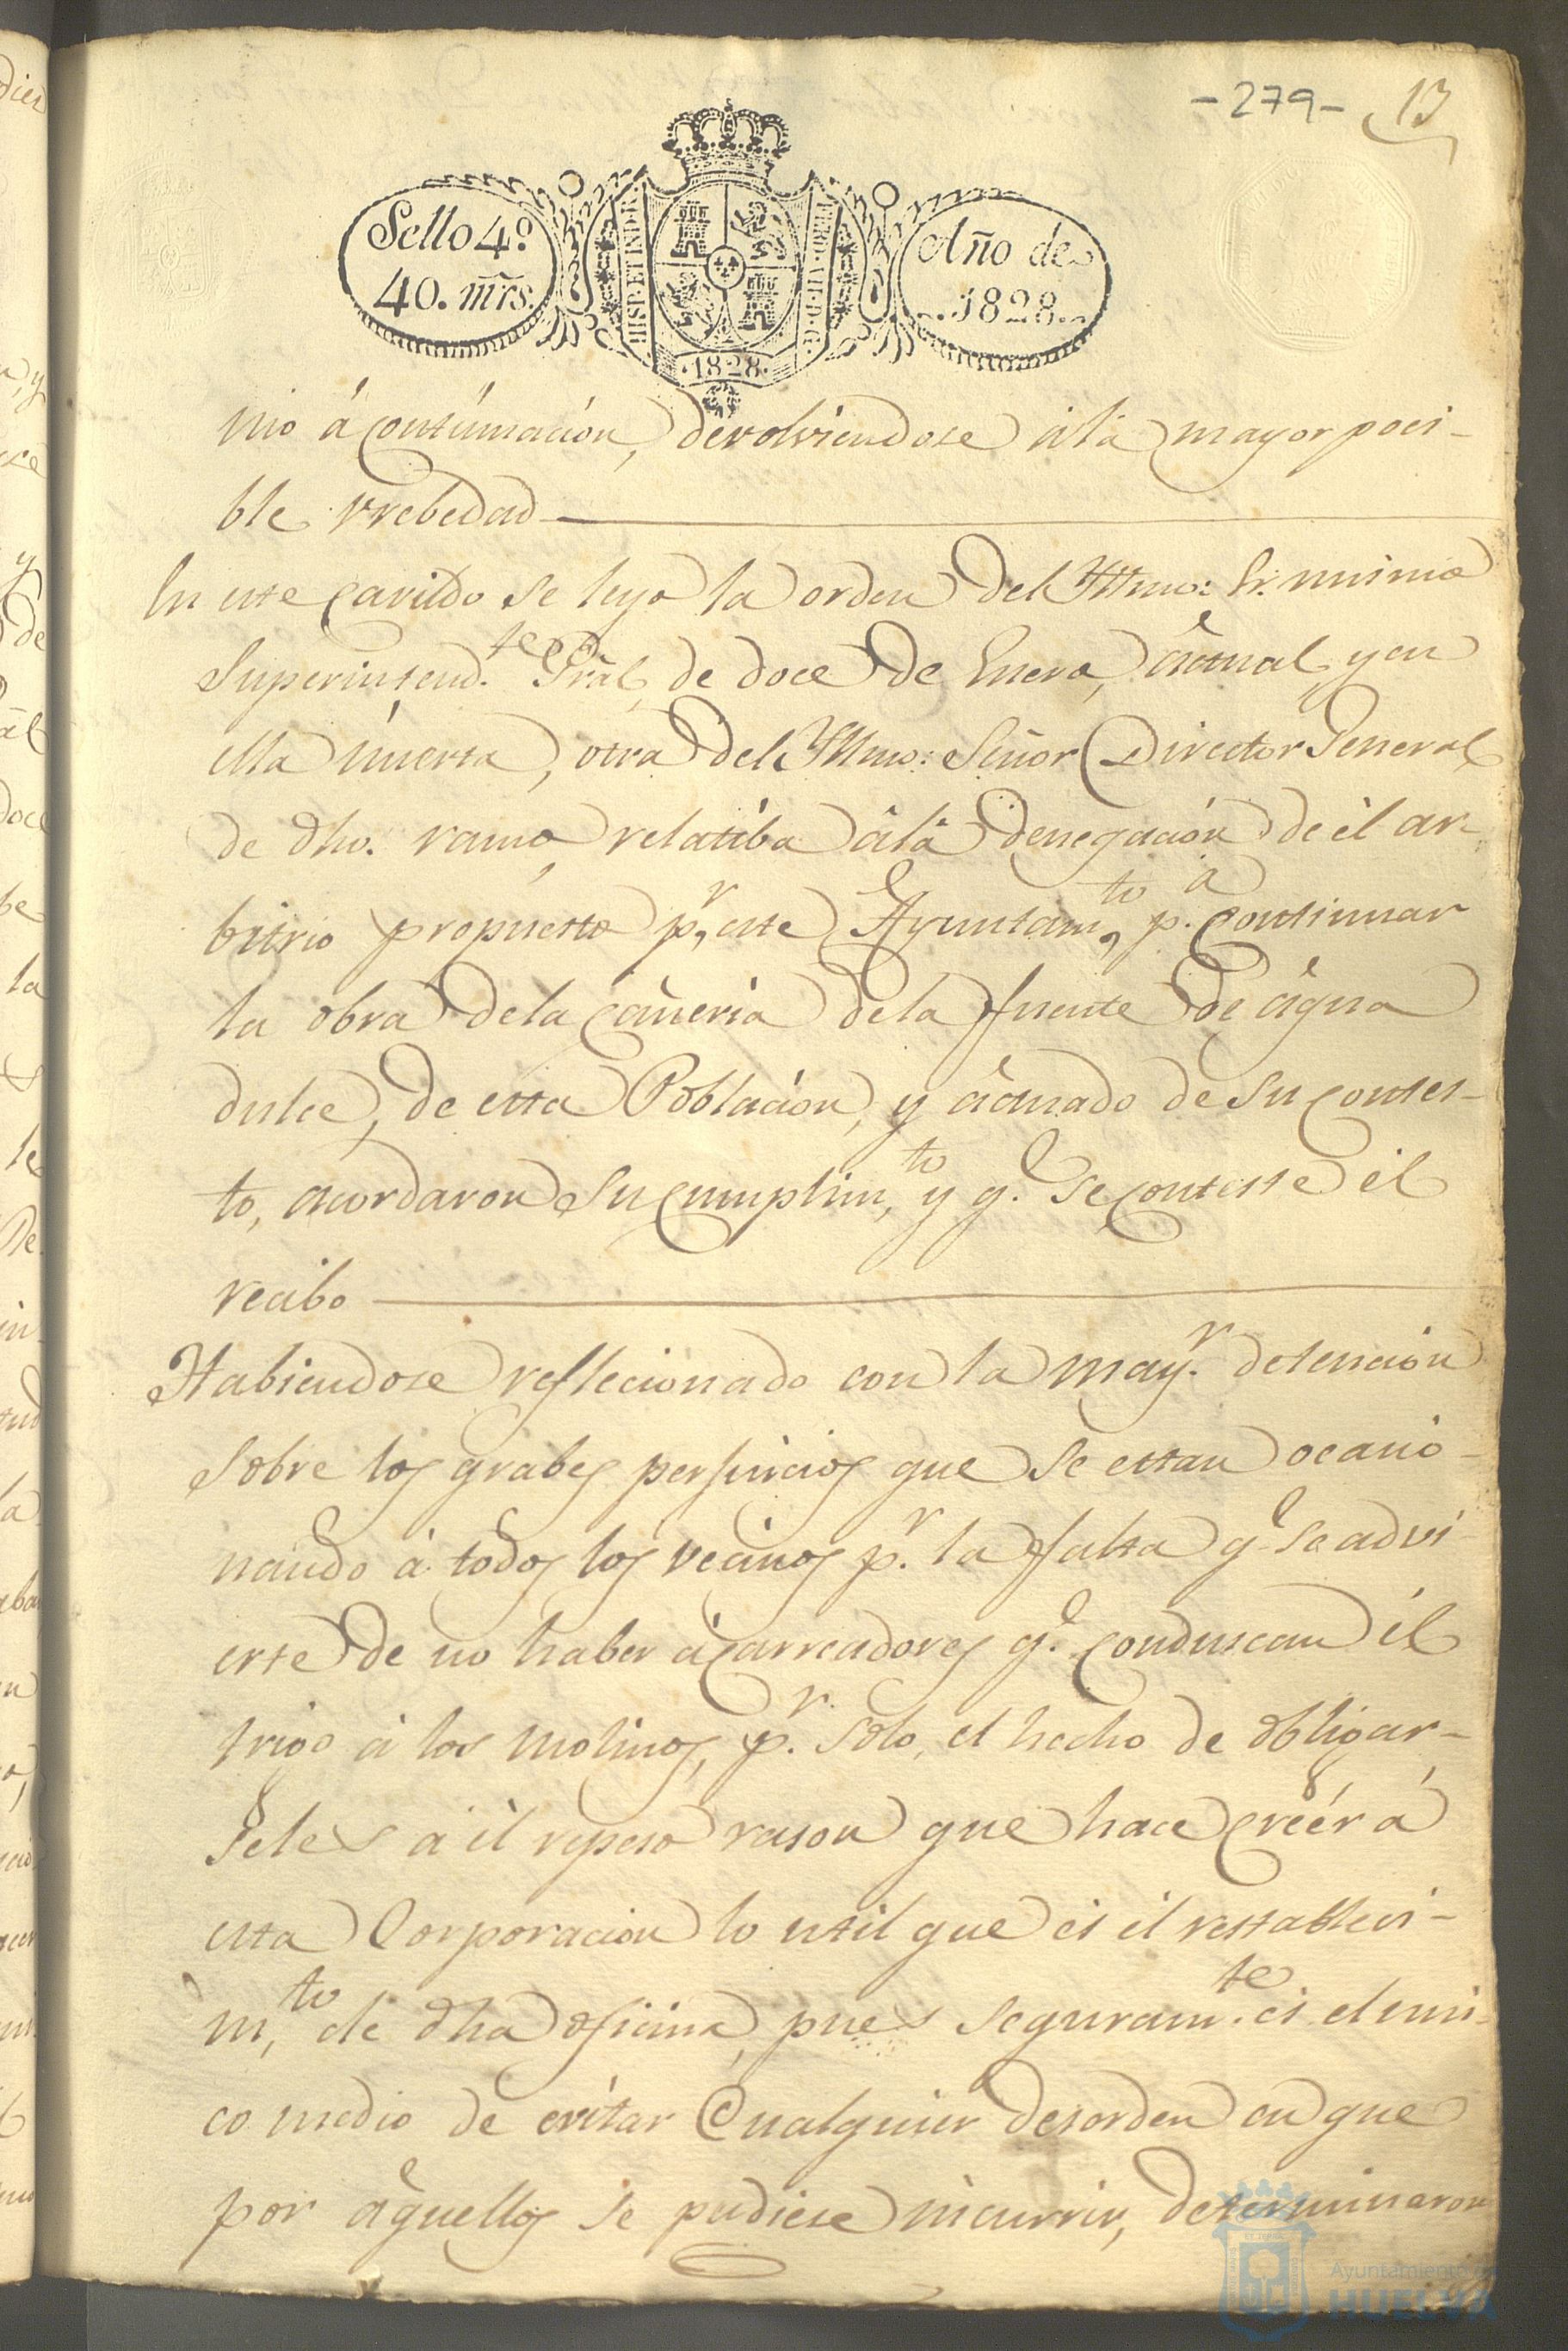 -279- 13
Sello 4º
40. mrs.
HISP. ET IND. R.
FERD. VII. D. G.
Año de
1828.
.1828.
nio á continuación, devolviendose a la mayor poci-
ble vrebedad
En este cavildo se leyo la orden del Yltmo: Sr. mimo
Superintend.te Gral, de doce de Enero, actual, y en
ella incerta, otra del Yltmo: Señor Director General
de dho. ramo, relatiba á la denegación de él ar-
bitrio propuesto pr, este Ayuntamto, p.a continuar
la obra de la Cañeria de la ffuente de agua
dulce, de esta Población, y acimado de su contes-
to, acordaron su cumplimto, y q.e se conteste él
recibo
Habiendose reflecionado con la may.r detención
sobre los grabes perjuicios que se estan ocacio-
nando á todos los vecinos p.r la ffalta q.e se advi-
erte de no haber acarreadores q.e conduscan él
trigo á los molinos, p.r solo, el hecho de obligar-
seles a él repeso rason que hace creér á
esta Corporacion lo util que és él restableci-
m,to de dha oficina, pues seguram.te és el uni-
co medio de evitar Cualquier desorden en que
por aquellos se pudiese incurrir, determinaron
Ayuntamiento de
HUELVA